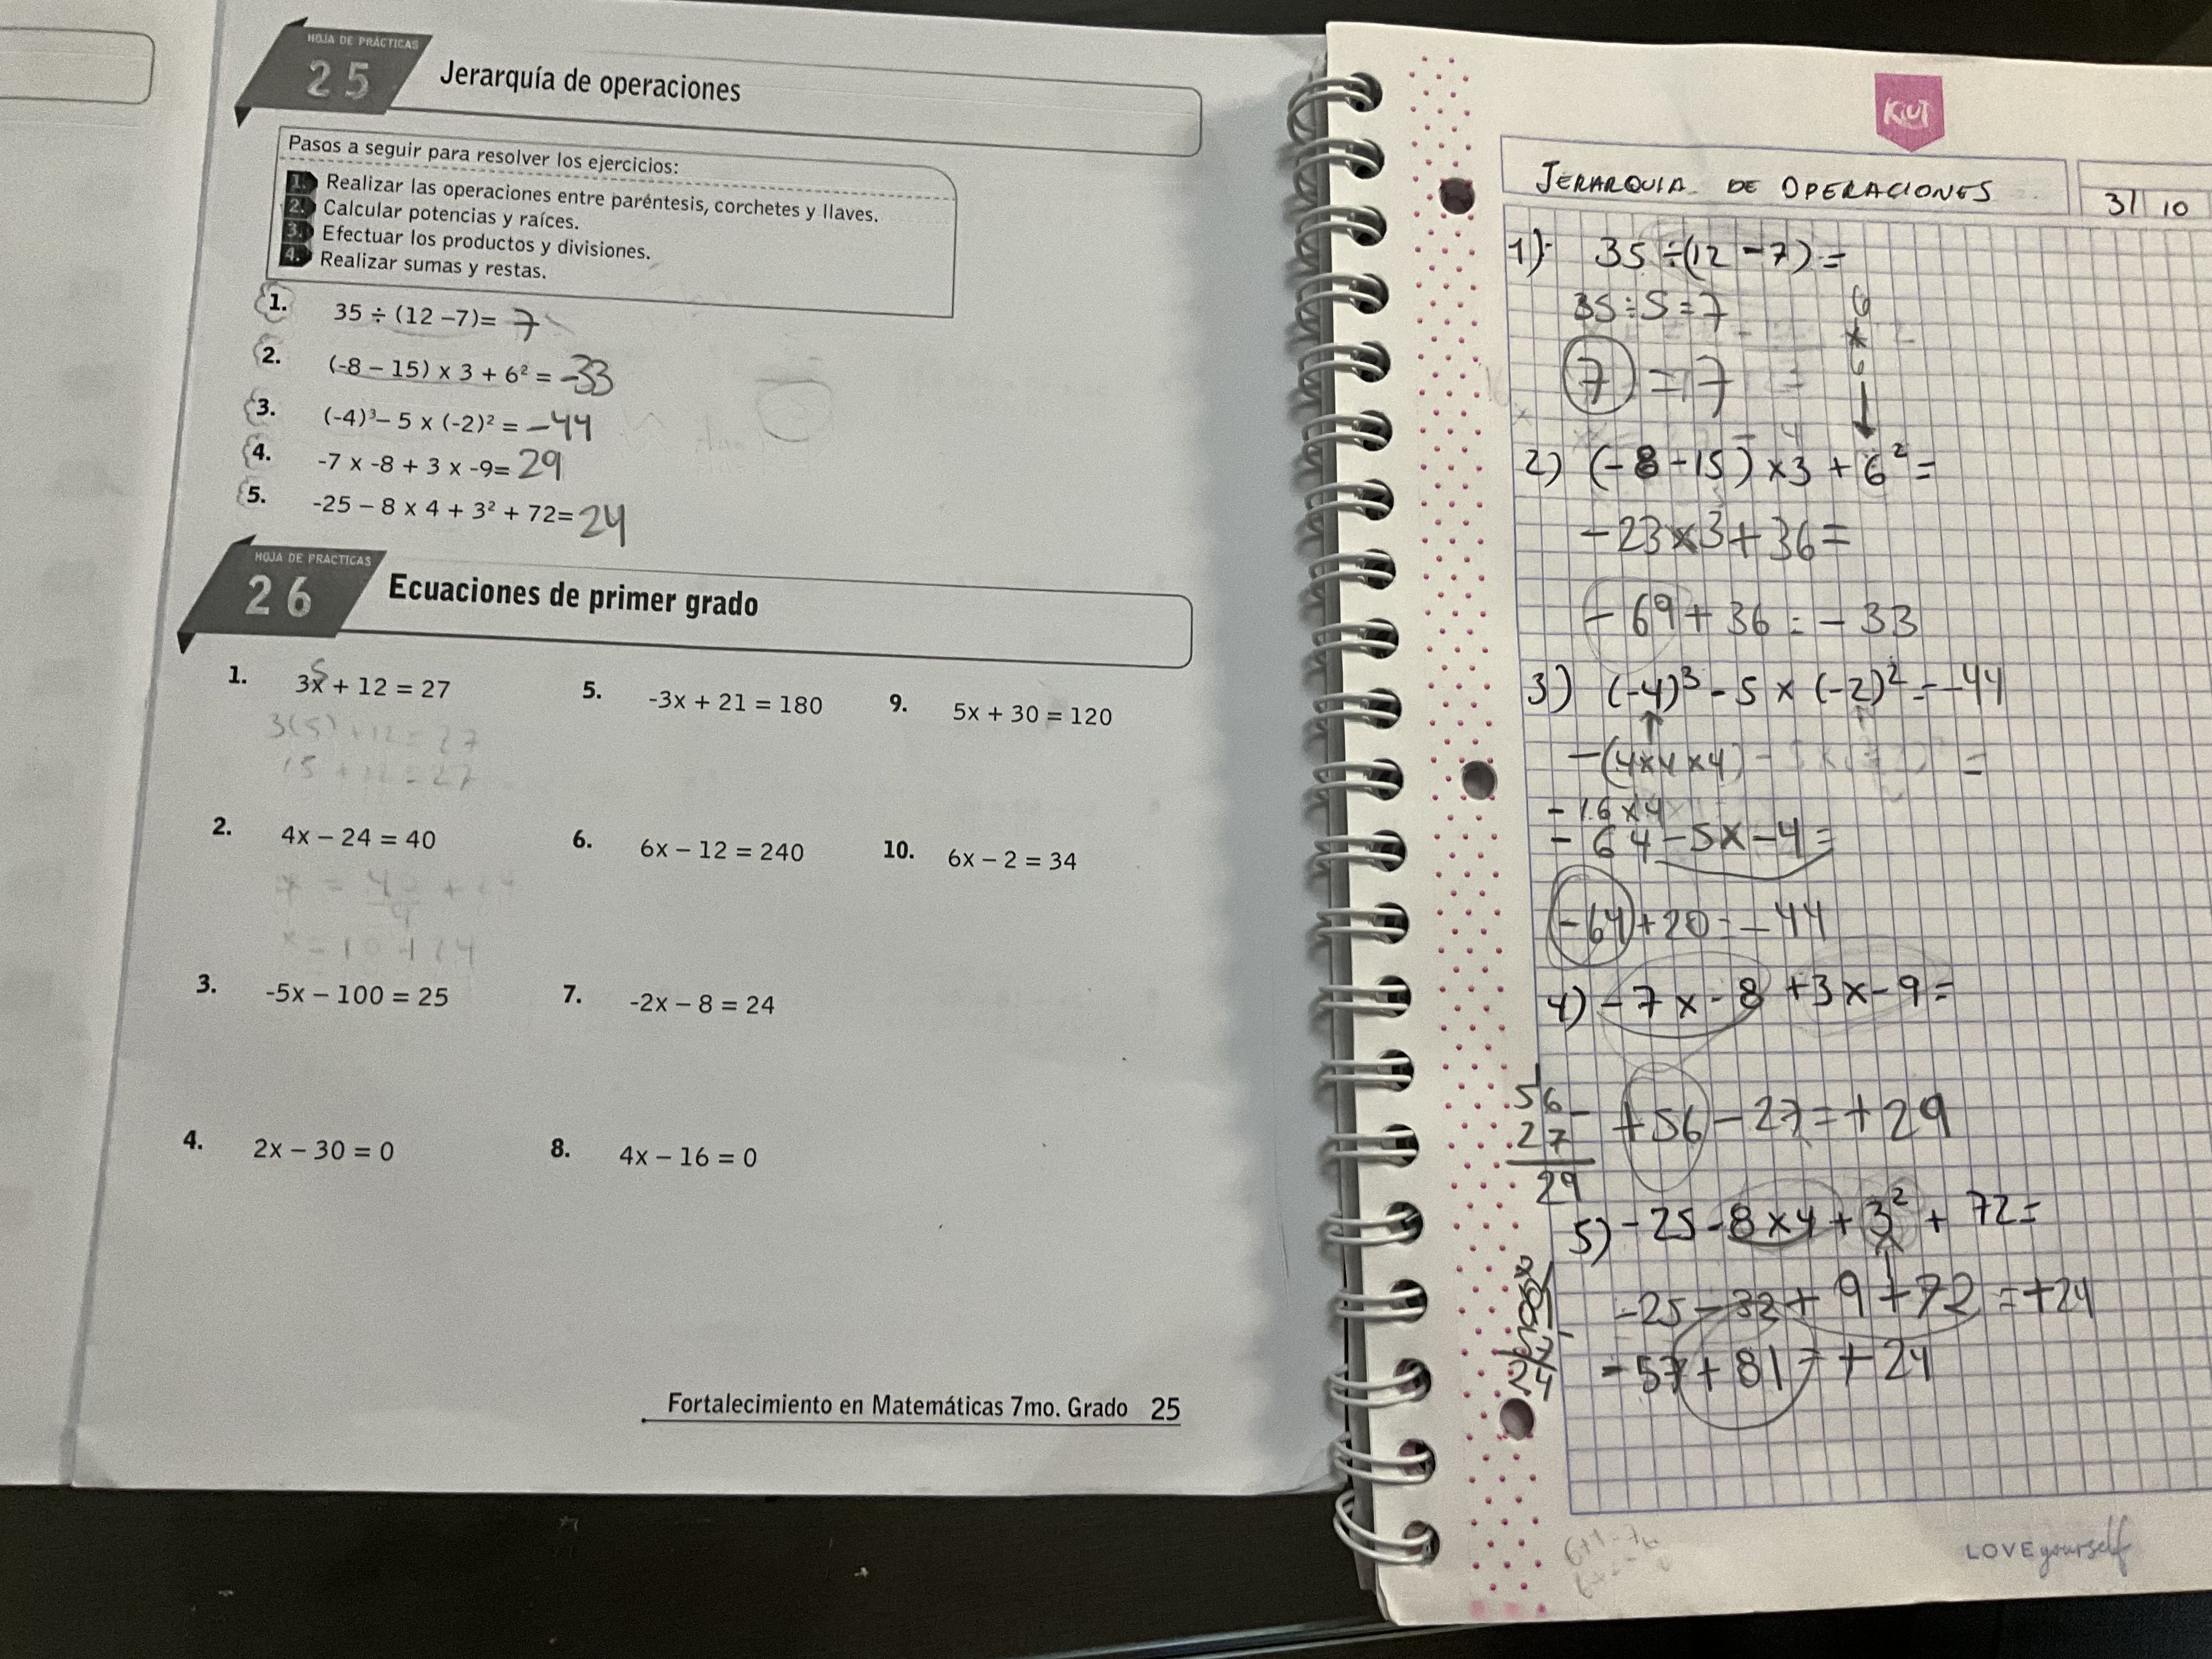 HOJA DE PRÁCTICAS
25
Jerarquía de operaciones
Pasos a seguir para resolver los ejercicios:
1. Realizar las operaciones entre paréntesis, corchetes y llaves.
2. Calcular potencias y raíces.
3. Efectuar los productos y divisiones.
4. Realizar sumas y restas.
1. 35 ÷ (12 –7)= 7
2. (-8 – 15) x 3 + 6² = -33
3. (-4)³– 5 x (-2)² = -44
4. -7 x -8 + 3 x -9= 29
5. -25 – 8 x 4 + 3² + 72= 24
HOJA DE PRACTICAS
26
Ecuaciones de primer grado
1. 3x + 12 = 27
5
3(5) +12 = 27
15 + 12 = 27
5. -3x + 21 = 180
9. 5x + 30 = 120
2. 4x – 24 = 40
x = 40/4 + 24
x = 10 + 24
6. 6x – 12 = 240
10. 6x – 2 = 34
3. -5x – 100 = 25
7. -2x – 8 = 24
4. 2x – 30 = 0
8. 4x – 16 = 0
Fortalecimiento en Matemáticas 7mo. Grado 25
KIUT
JERARQUIA DE OPERACIONES
31 10
1) 35 ÷(12 -7) =
35 ÷ 5 = 7
7 = 7
6
x
6
2) (-8 -15) x3 + 6² =
-23x3+36=
-69+36 = -33
3) (-4)³ - 5 x (-2)² = -44
-(4x4x4) =
-16x4
-64-5x-4=
-64+20=-44
4) -7x-8 +3x-9=
56-
27
29
+56-27=+29
5) -25-8x4+3²+ 72=
-25-32+9+72=+24
-57+81=+24
LOVE yourself